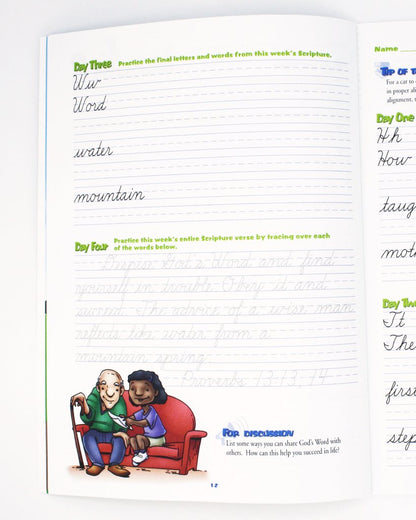 Day Three Practice the final letters and words from this week's Scripture.
Ww
Word
water
mountain
Day Four Practice this week's entire Scripture verse by tracing over each
of the words below.
Despise God's Word and find
yourself in trouble. Obey it and
succeed. The advice of a wise man
refreshes like water from a
mountain spring.
Proverbs 13:13, 14
For Discussion
List some ways you can share God's Word with
others. How can this help you succeed in life?
12
Name
Tip of t
For a cat to
in proper ali
alignment,
Day One
Hh
How
taug
moth
Day Tw
Tt
The
first
step